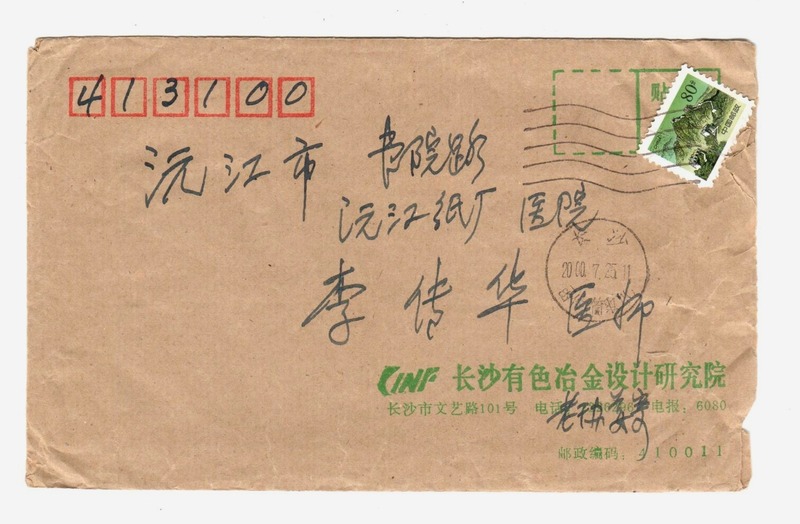 413100
贴
80分
中国邮政
沅江市 书院路
沅江纸厂 医院
李传华 医师
长沙
2000.7.25.11
CINF 长沙有色冶金设计研究院
长沙市文艺路101号 电话 电报：6080
邮政编码：410011